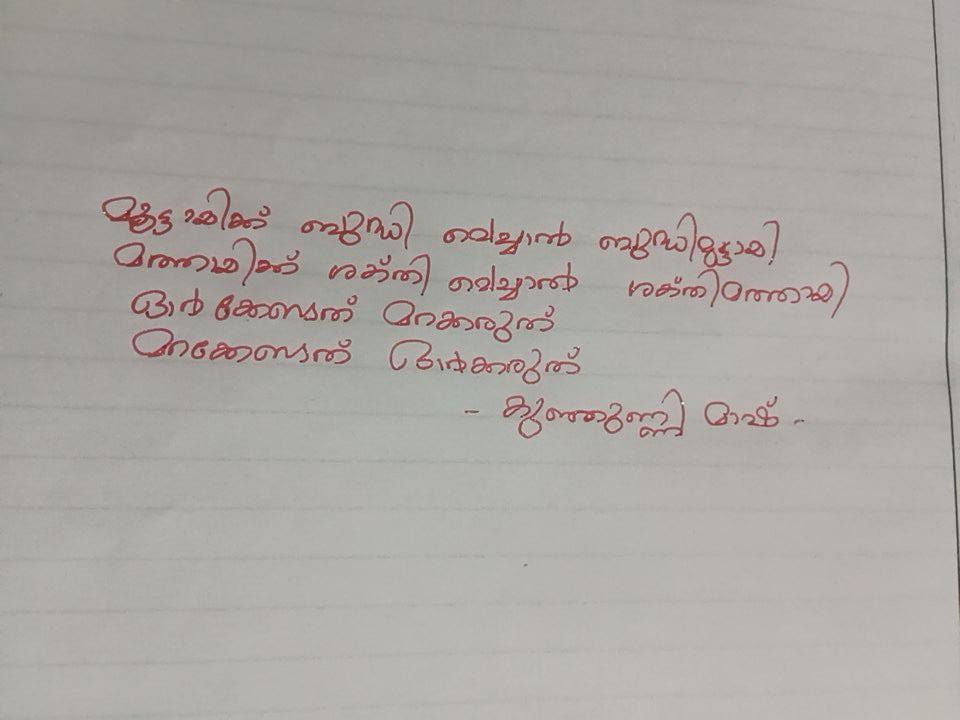 മുട്ടായിക്ക് ബുദ്ധി വെച്ചാൽ ബുദ്ധിമുട്ടായി
മത്തായിക്ക് ശക്തി വെച്ചാൽ ശക്തിമത്തായി
ഓർക്കേണ്ടത് മറക്കരുത്
മറക്കേണ്ടത് ഓർക്കരുത്
- കുഞ്ഞുണ്ണി മാഷ് -